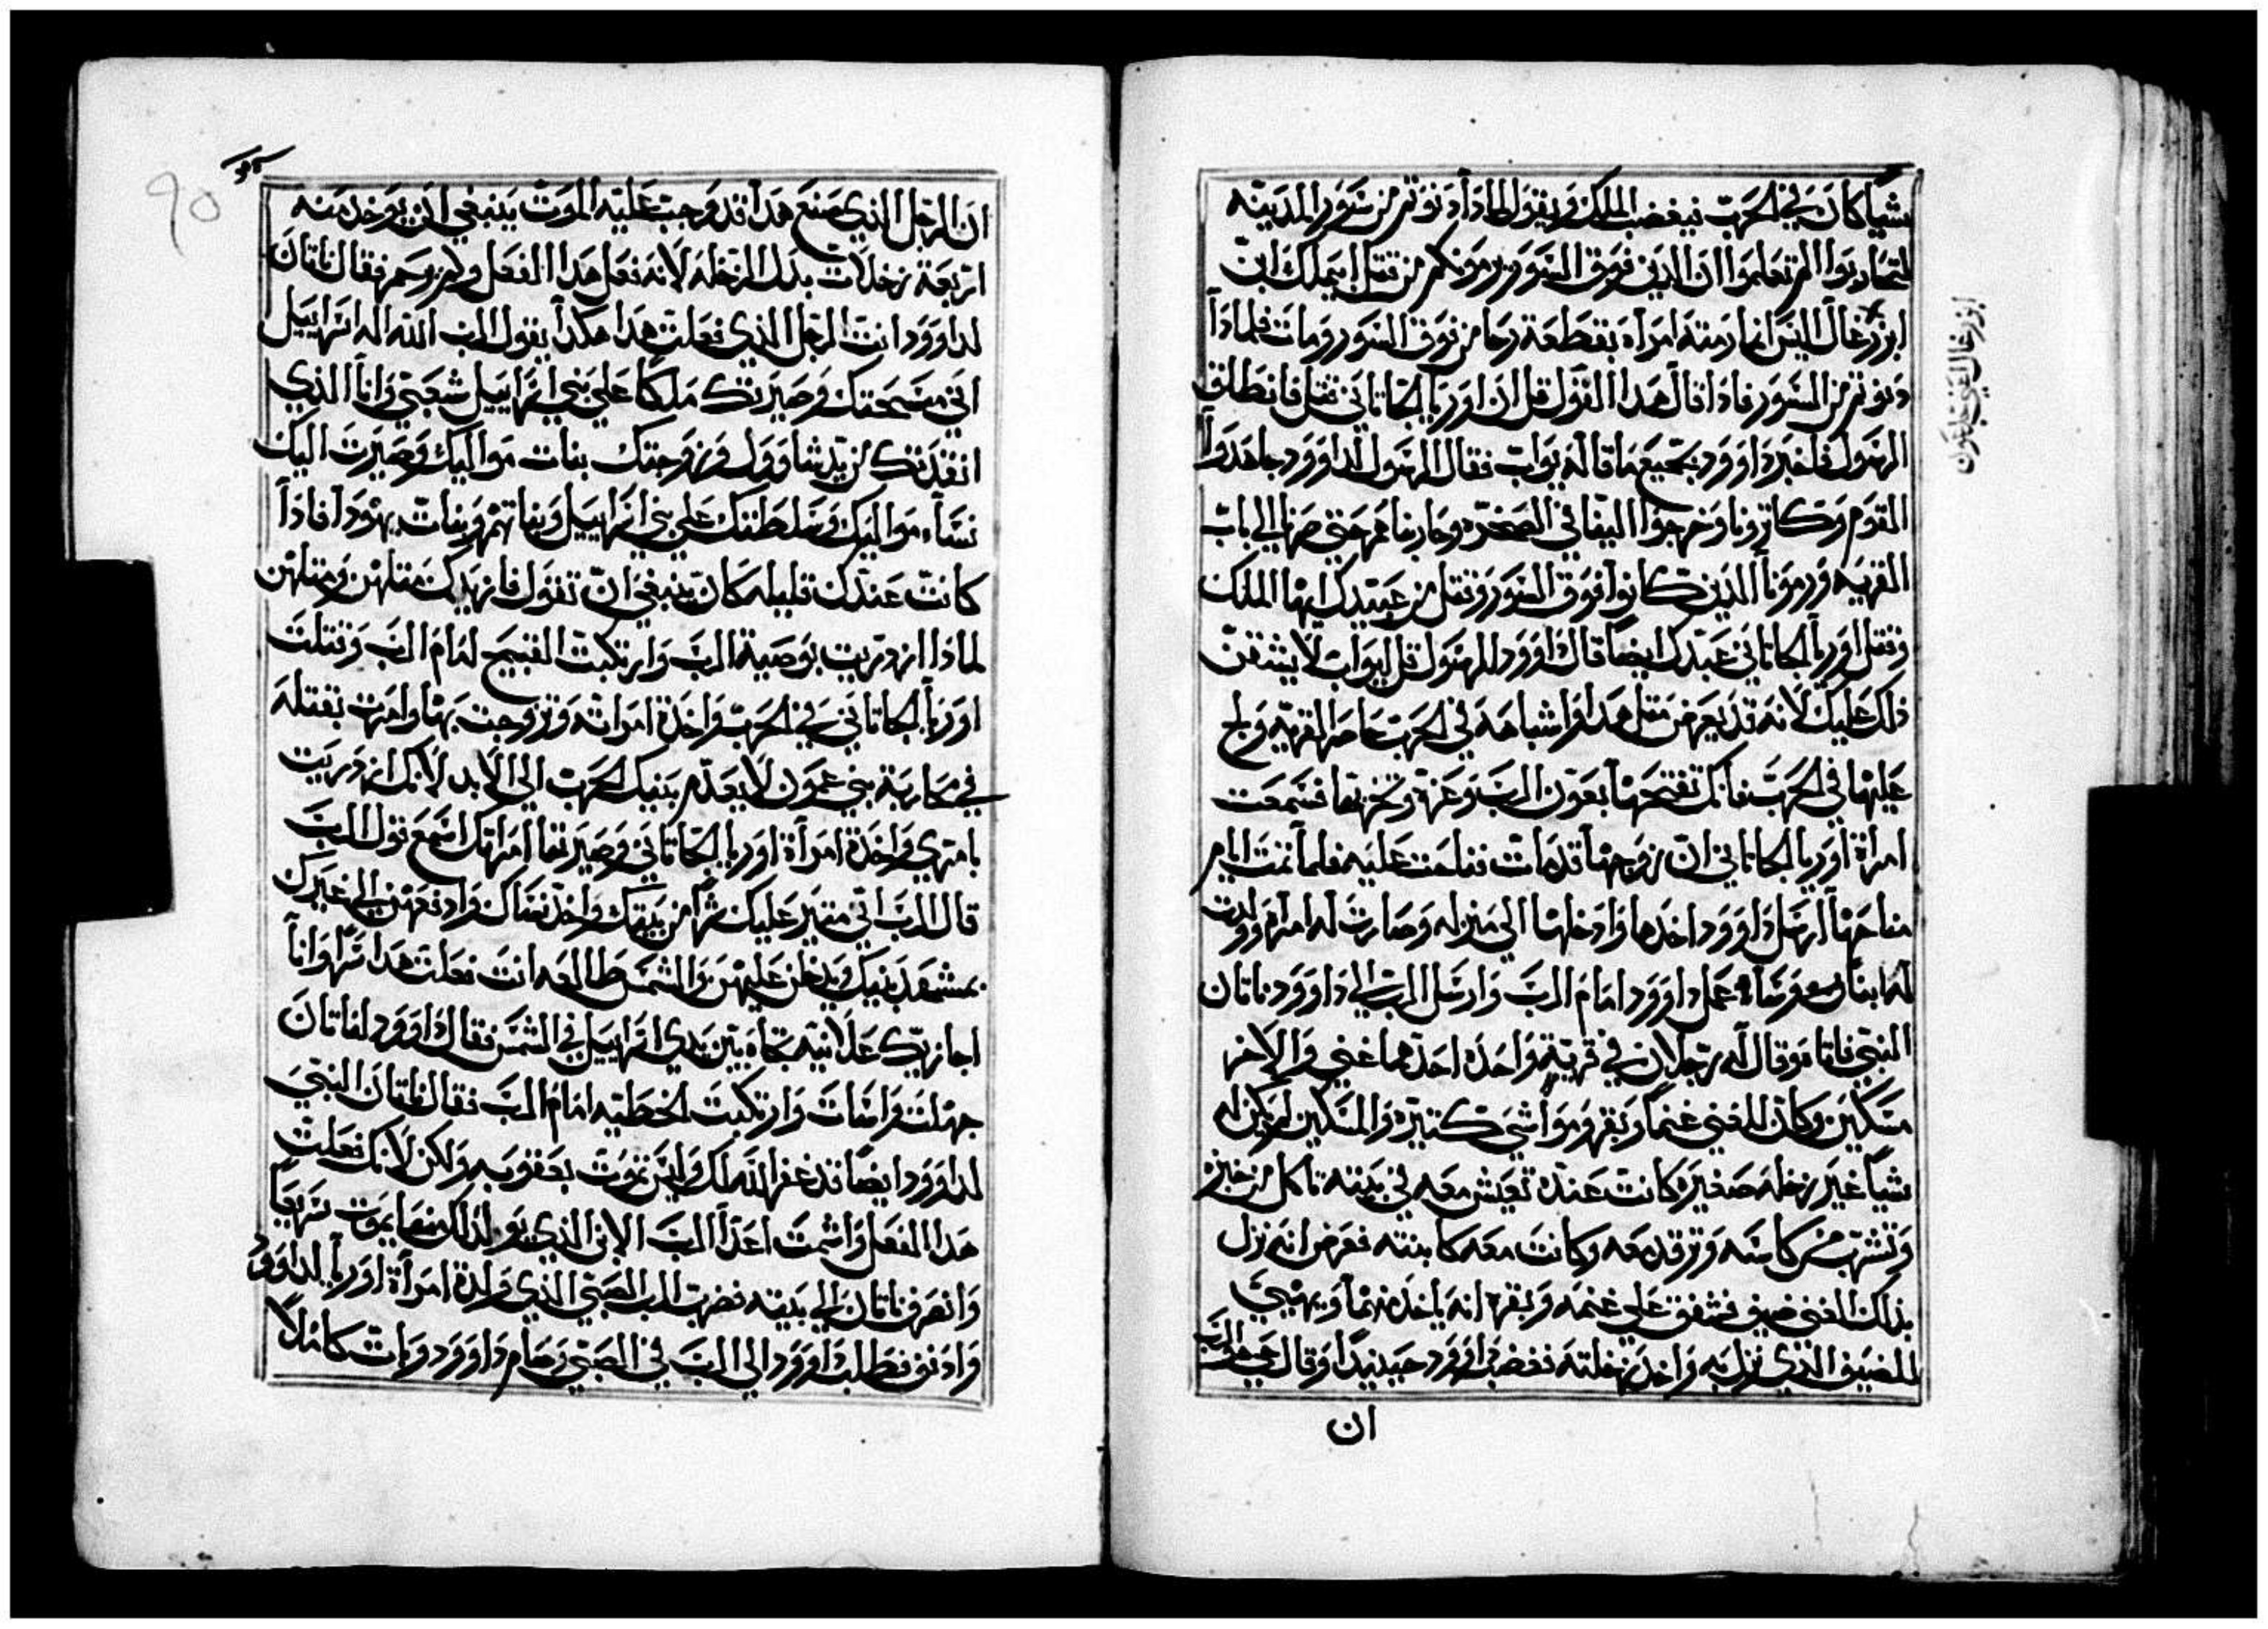 شياً كان في الحرب فيغضب الملك ويقول لماذا دنوتم من سور المدينه
لتحاربوا الم تعلموا ان الذين فوق السور يرمونكم من قتل ابيملك ابن
ابن زغال اليس انما رمته امراه بقطعة رحا من فوق السور ومات فلماذا
دنوتم من السور فاذا قال هذا القول قل ان اوريا الحاتاني قتل فانطلق
الرسول فاخبر داوود بجميع ما قاله يواب فقال الرسول لداوود جاهدوا
القوم وتكاثرونا وخرجوا الينا في الصحره وحاربناهم حتي صرنا الي باب
القريه ورمونا الذين كانوا فوق السور وقتل من عبيدك ايها الملك
وقتل اوريا الحاتاني عبدك ايضا قال داوود للرسول قل ليواب لا يشقن
ذلك عليك لانه قد يعرض مثل هدا واشباهه في الحرب حاصر القريه ولج
عليها في الحرب فانك تفتحها بعون الرب وعزه وتخربها فسمعت
امراة اوريا الحاتاني ان زوجها قد مات فناحت عليه فلما تمت ايام
مناحتها ارسل داوود اخدها وادخلها الي منزله وصارت له امراه وولدت
له ابناً وساه عمل داوود امام الرب وارسل الرب الي داوود ناتان
النبي فاتاه وقال له رجلان في قرية واحده احدهما غني والاخر
مسكين وكان للغني غنماً وبقر ومواشي كتيره والمسكين لم يكن له
شياً غير رخله صغيره كانت عنده تعيش معه في بيته تاكل من خبزه
وتشرب من كاسه وترقد معه وكانت معه كابنته فعرض انه نزل
بذلك الغني ضيف فشفق علي غنمه وبقره انه ياخد منهما ويهيي
للضيف الذي نزل به واخد رخلته فغضب داوود جيداً وقال حي هو الرب
ان
ابن زغال اعني جدعون
ان الرجل الذي صنع هدا قد وجبت عليه الموت ينبغي ان يوخد منه
اربعة رخلات بدل الرخله لانه فعل هدا الفعل ولم يرحم فقال ناتان
لداوود انت الرجل الذي فعلت هدا هكدا يقول الرب الله اله اسراييل
اني مسحتك وصيرتك ملكا علي بني اسراييل شعبي وانا الذي
انقذتك من يد شاوول وزوجتك بنات مواليك وصيرت اليك
نساء مواليك وسلطتك علي بني اسراييل وبناتهم وبنات يهودا فاذا
كانت عندك قليله كان ينبغي ان تقول فازيدك مثلهن ومثلهن
لماذا ازدريت بوصية الرب وارتكبت القبيح امام الرب وقتلت
اوريا الحاتاني في الحرب واخدة امراته وتزوجت بها وامرت بقتله
في محاربة بني عمون لا يعدم بيتك الحرب الي الابد لانك ازدريت
بامري واخدة امرأة اوريا الحاتاني وصيرتها امراتك اسمع قول الرب
قال الرب اني متير عليك شراً من بيتك واخد نساك وادفعهن الي غيرك
بمشهد منك ويدخل عليهن والشمس طالعه انت فعلت هدا سراً وانا
اجازيك علانيه تجاه بين يدي اسراييل في الشمس فقال داوود لناتان
جهلت واسات وارتكبت الخطيه امام الرب فقال ناتان النبي
لداوود ايضا قد غفر الله لك وليس تموت بعقوبه ولكن لانك فعلت
هدا الفعل واشمت اعدآ الرب الابن الذي يولد لك منها يموت سريعاً
وانصرف ناتان الي بيته فضرب الرب الصبي الذي ولدة امرأة اوريا لداوود
وادنف فطلب داوود الي الرب في الصبي وصام داوود وبات كاملاً